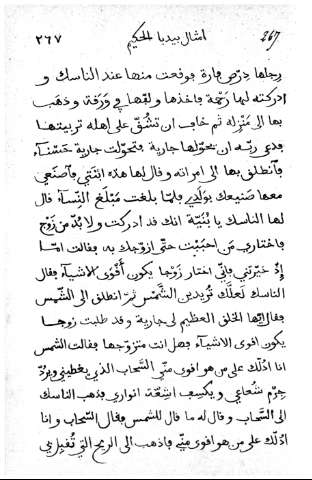 ٢٦٧ امثال بيدبا الحكيم 267
رجلها درص فارة فوقعت منها عند الناسك و
ادركته لها رحمة فاخذها ولفها في ورقة وذهب
بها الى منزله ثم خاف ان تشق على اهله تربيتها
فدعى ربه ان يحولها جارية فتحولت جارية حسناء
فانطلق بها الى امراته وقال لها هذه ابنتي فاصنعي
معها صنيعك بولدي فلما بلغت مبلغ النساء قال
لها الناسك يا بنية انك قد ادركت ولا بد من زوج
فاختاري من احببت حتى ازوجك به فقالت اما
إذ خيرتني فاني اختار زوجا يكون أقوى الاشياء فقال
الناسك لعلك تريدين الشمس ثم انطلق الى الشمس
فقال ايها الخلق العظيم لي جارية وقد طلبت زوجا
يكون اقوى الاشياء فهل انت متزوجها فقالت الشمس
انا ادلك على من هو اقوى مني السحاب الذي يغطيني ويرد
جرم شعاعي ويكسف اشعة انواري فذهب الناسك
الى السحاب وقال له ما قال للشمس فقال السحاب وانا
ادلك على من هو اقوى مني فاذهب الى الريح التي تقبل بي